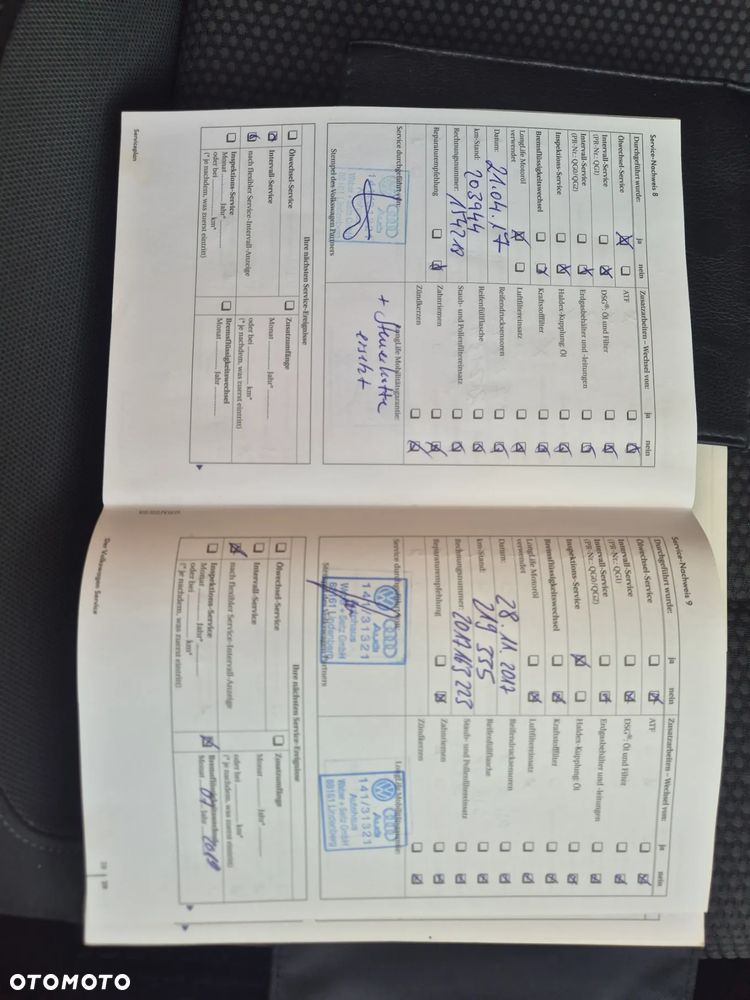 Service-Nachweis 8
Durchgeführt wurde: ja nein
Ölwechsel-Service
Intervall-Service
(PR-Nr.: QG1)
Intervall-Service
(PR-Nr.: QG0/QG2)
Inspektions-Service
Bremsflüssigkeitswechsel
LongLife Motoröl
verwendet
Datum: 21.04.17
km-Stand: 203944
Rechnungsnummer: 154218
Reparaturempfehlung
Zusatzarbeiten – Wechsel von: ja nein
ATF
DSG®: Öl und Filter
Erdgasbehälter und -leitungen
Haldex-Kupplung: Öl
Kraftstofffilter
Luftfiltereinsatz
Reifendrucksensoren
Reifenfüllflasche
Staub- und Pollenfiltereinsatz
Zahnriemen
Zündkerzen
Service durchgeführt von:
Stempel des Volkswagen Partners
LongLife Mobilitätsgarantie:
+ Steuerkette
ersetzt
Ihre nächsten Service-Ereignisse
Ölwechsel-Service
Intervall-Service
nach flexibler Service-Intervall-Anzeige
Inspektions-Service
Monat Jahr*
oder bei km*
(* je nachdem, was zuerst eintritt)
Zusatzumfänge
Monat Jahr*
oder bei km*
(* je nachdem, was zuerst eintritt)
Bremsflüssigkeitswechsel
Monat Jahr
Serviceplan
Service-Nachweis 9
Durchgeführt wurde: ja nein
Ölwechsel-Service
Intervall-Service
(PR-Nr.: QG1)
Intervall-Service
(PR-Nr.: QG0/QG2)
Inspektions-Service
Bremsflüssigkeitswechsel
LongLife Motoröl
verwendet
Datum: 28.11.2017
km-Stand: 219 335
Rechnungsnummer: 2017163223
Reparaturempfehlung
Zusatzarbeiten – Wechsel von: ja nein
ATF
DSG®: Öl und Filter
Erdgasbehälter und -leitungen
Haldex-Kupplung: Öl
Kraftstofffilter
Luftfiltereinsatz
Reifendrucksensoren
Reifenfüllflasche
Staub- und Pollenfiltereinsatz
Zahnriemen
Zündkerzen
Audi
141/31321
Autohaus
Walter + Seitz GmbH
88161 Lindenberg
Audi
141/31321
Autohaus
Walter + Seitz GmbH
88161 Lindenberg
Ihre nächsten Service-Ereignisse
Ölwechsel-Service
Intervall-Service
nach flexibler Service-Intervall-Anzeige
Inspektions-Service
Monat Jahr*
oder bei km*
(* je nachdem, was zuerst eintritt)
Zusatzumfänge
Monat Jahr*
oder bei km*
(* je nachdem, was zuerst eintritt)
Bremsflüssigkeitswechsel
Monat 07 Jahr 2019
Der Volkswagen Service
OTOMOTO